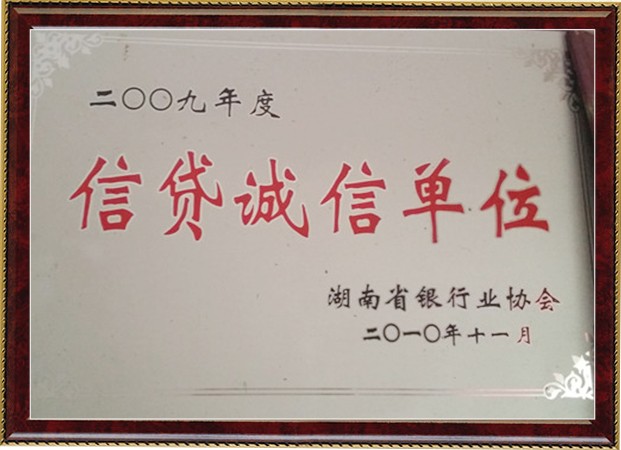 二〇〇九年度
信贷诚信单位
湖南省银行业协会
二〇一〇年十一月